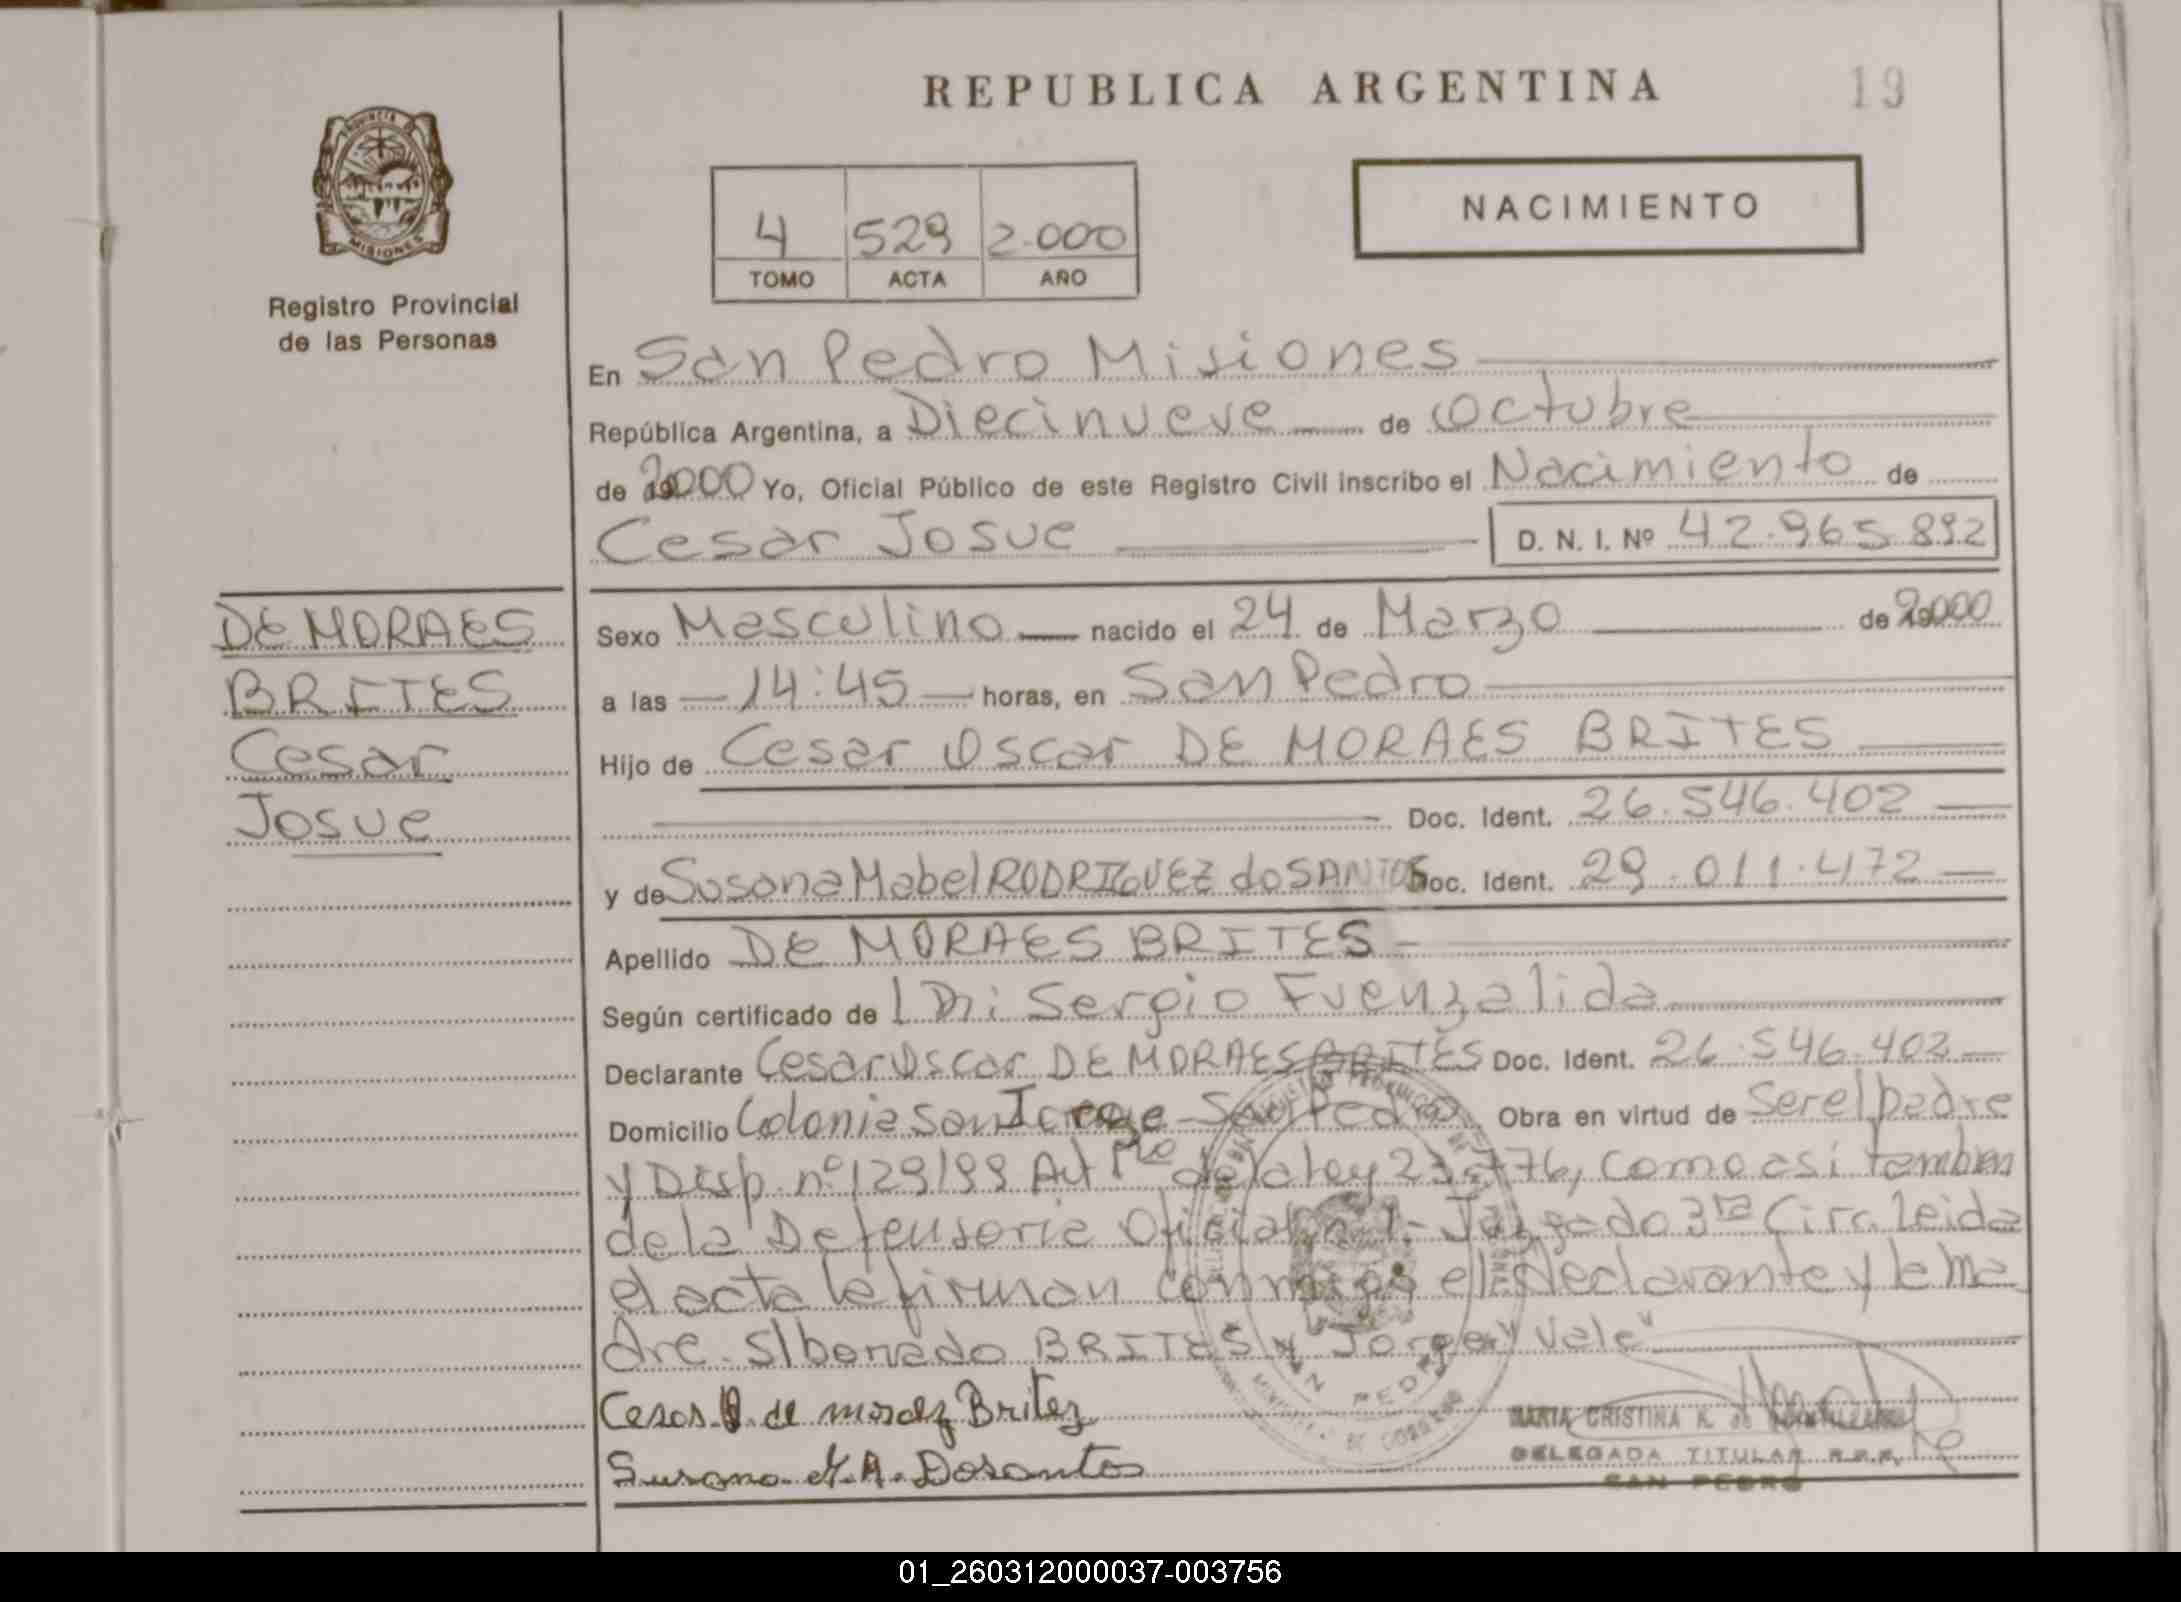 REPUBLICA ARGENTINA
19
PROVINCIA DE
MISIONES
Registro Provincial
de las Personas
4 529 2.000
TOMO ACTA AÑO
NACIMIENTO
En San Pedro Misiones
República Argentina, a Diecinueve de Octubre
de 2000 Yo, Oficial Público de este Registro Civil inscribo el Nacimiento de
Cesar Josue D. N. I. Nº 42.965.892
DE MORAES
BRITES
Cesar
Josue
Sexo Masculino nacido el 24 de Marzo de 2000
a las 14:45 horas, en San Pedro
Hijo de Cesar Oscar DE MORAES BRITES
Doc. Ident. 26.546.402
y de Susana Mabel RODRIGUEZ do SANTOS Doc. Ident. 29.011.472
Apellido DE MORAES BRITES
Según certificado de Sergio Fuenzalida
Declarante Cesar Oscar DE MORAES BRITES Doc. Ident. 26.546.402
Domicilio Colonia San Jorge San Pedro Obra en virtud de Ser el padre
y Disp. nº 129/99 Art de la ley 23.776, como asi tambien
de la Defensoria Oficial nº 1- Juzgado 3ra Circ. Leida
el acta la firman conmigo el declarante y la ma
dre. S/borrado BRITES y Jorge "Vale"
de moraez Britez
Susana M. A. Dosantos
SAN PEDRO
MARIA CRISTINA K. de
DELEGADA TITULAR R.P.P.
SAN PEDRO
01_260312000037-003756